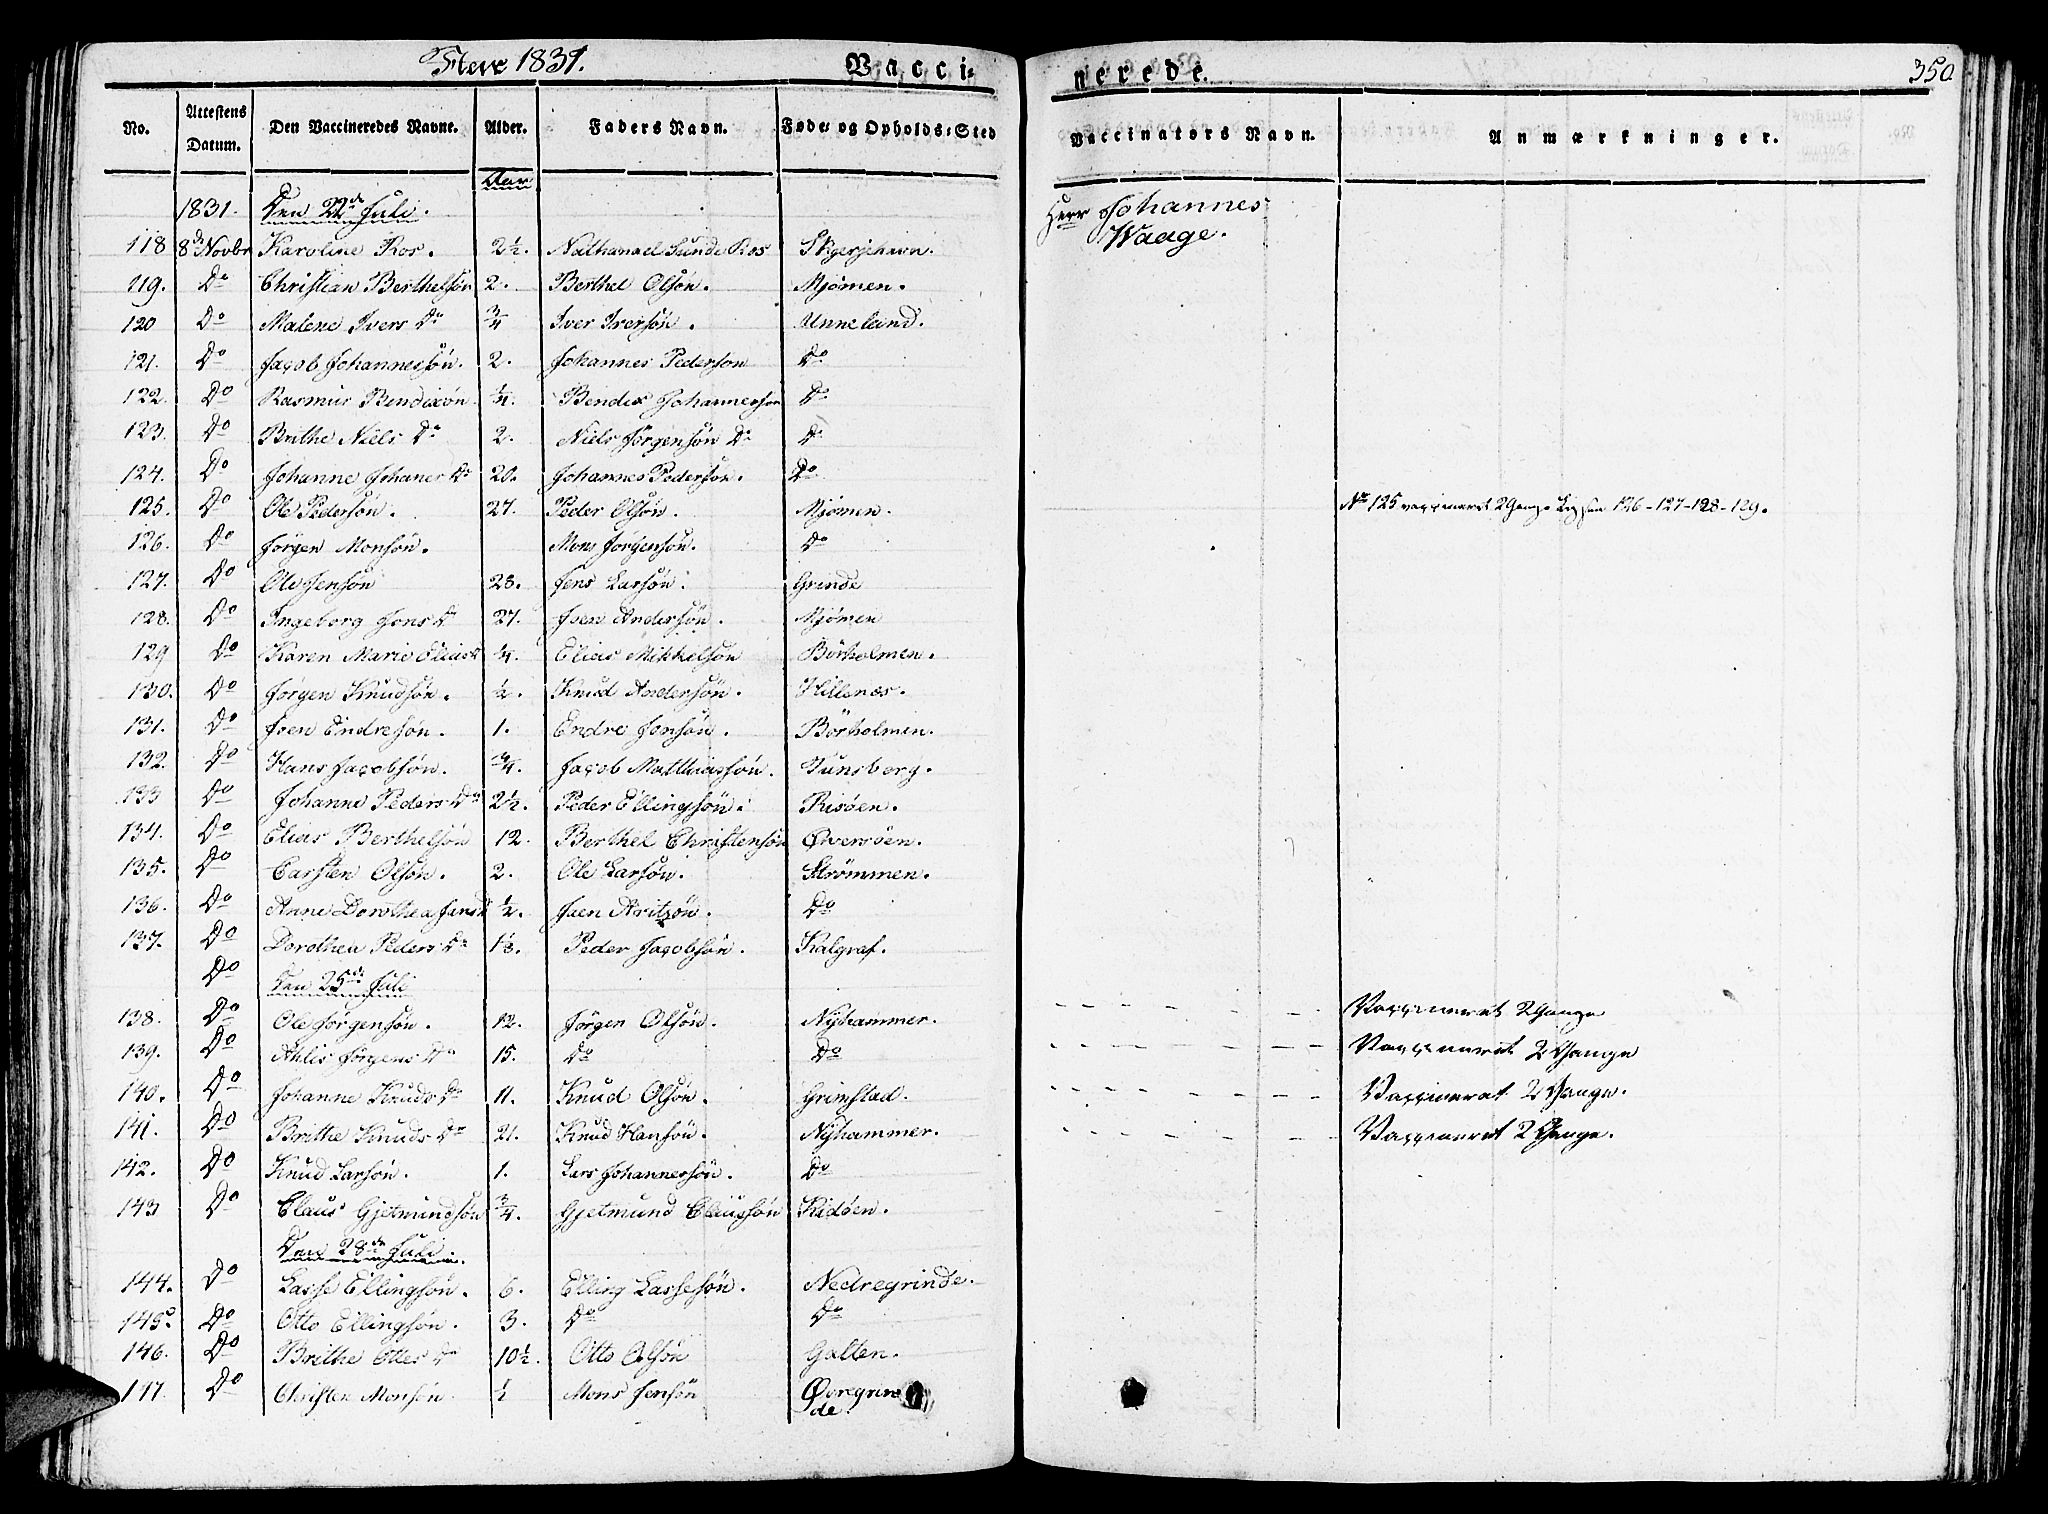 1831. Vacci-
nerede. 350
No. Attestens Datum. Den Vaccineredes Navne. Alder. Faders Navn. Føde- og Opholds-Sted Vaccinators Navn. Anmærkninger.
Aar
1831. Den 22de Juli. Herr Johannes
Waage.
118 8de Novbr Karoline Ros. 2½. Nathanael Sunde Ros Skjerjehavn.
119. Do Christian Berthelsøn 2. Berthel Olsøn. Mjømen.
120 Do Malene Ivers Dr ¾ Iver Iversøn. Unneland.
121. Do Jacob Johannessøn. 2. Johannes Pedersøn Do
122. Do Rasmus Bendixøn ¾. Bendix Johannessøn Do
123. Do Brithe Niels Dr 2. Niels Jørgensøn Do
124. Do Johanne Johanes Dr 20. Johannes Pedersøn. Do
125. Do Ole Pedersøn. 27. Peder Olsøn. Mjømen. No 125 vaccineret 2 Gange 126-127-128-129.
126. Do Jørgen Monsøn. Mons Jørgensøn. Do
127. Do Ole Jensøn 28. Jens Larsøn. Grinde
128. Do Ingeborg Jons Dr 27. Joen Andersøn. Mjømen
129 Do Karen Marie Elias Dr ¾. Elias Mikkelsøn Børholmen.
130. Do Jørgen Knudsøn. ½. Knud Andersøn. Hillenæs.
131. Do Joen Endresøn. 1. Endre Jonsøn. Børholmen.
132. Do Hans Jacobsøn. ¾. Jacob Matthiassøn. Tunsberg.
133 Do Johanne Peders Dr 2½. Peder Ellingsøn. Risøen.
134. Do Elias Berthelsøn 12. Berthel Christensøn Øversøen.
135. Do Carsten Olsøn. 2. Ole Larsøn. Strømmen.
136. Do Anne Dorothea Jans D ½. Joen Aritsøn. Do
137. Do Dorothea Peders Dr 1⅛. Peder Jacobsøn. Kalgraf.
Do Den 25de Juli
138. Do Ole Jørgensøn. 12. Jørgen Olsøn. Nyhammer. Vaccineret 2 Gange
139. Do Ahlis Jørgens Dr 15. Do Do Vaccineret 2 Gange
140. Do Johanne Knuds Dr 11. Knud Olsøn. Grimstad. Vaccineret 2 Gange.
141. Do Brithe Knuds Dr 21. Knud Hansøn. Nyhammer. Vaccineret 2 Gange.
142. Do Knud Larsøn. 1. Lars Johannessøn. Do
143 Do Claus Gjetmundsøn ¾. Gjetmund Claussøn Kidøen.
Den 28de Juli.
144. Do Lasse Ellingsøn. 6. Elling Lassesøn. Nedregrinde.
145. Do Otto Ellingsøn. 3. Do Do
146. Do Brithe Ottes Dr 10½. Otto Olsøn Galten.
147. Do Christen Monsøn. ½ Mons Jensøn Øvregrin
de.